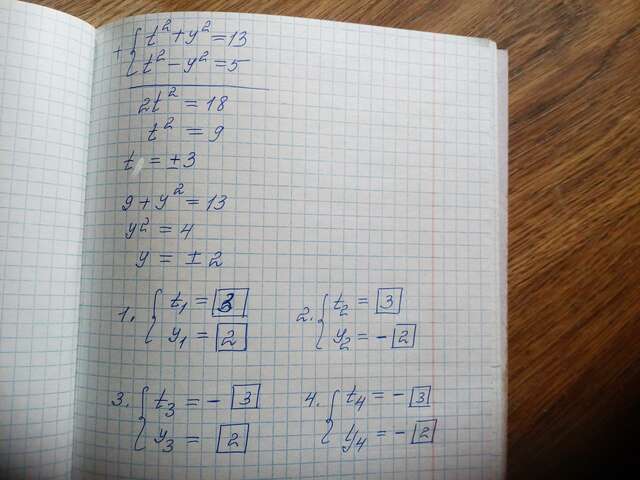 + { t² + y² = 13
t² - y² = 5
2t² = 18
t² = 9
t = ±3
9 + y² = 13
y² = 4
y = ±2
1. { t₁ = 3
y₁ = 2
2. { t₂ = 3
y₂ = -2
3. { t₃ = -3
y₃ = 2
4. { t₄ = -3
y₄ = -2